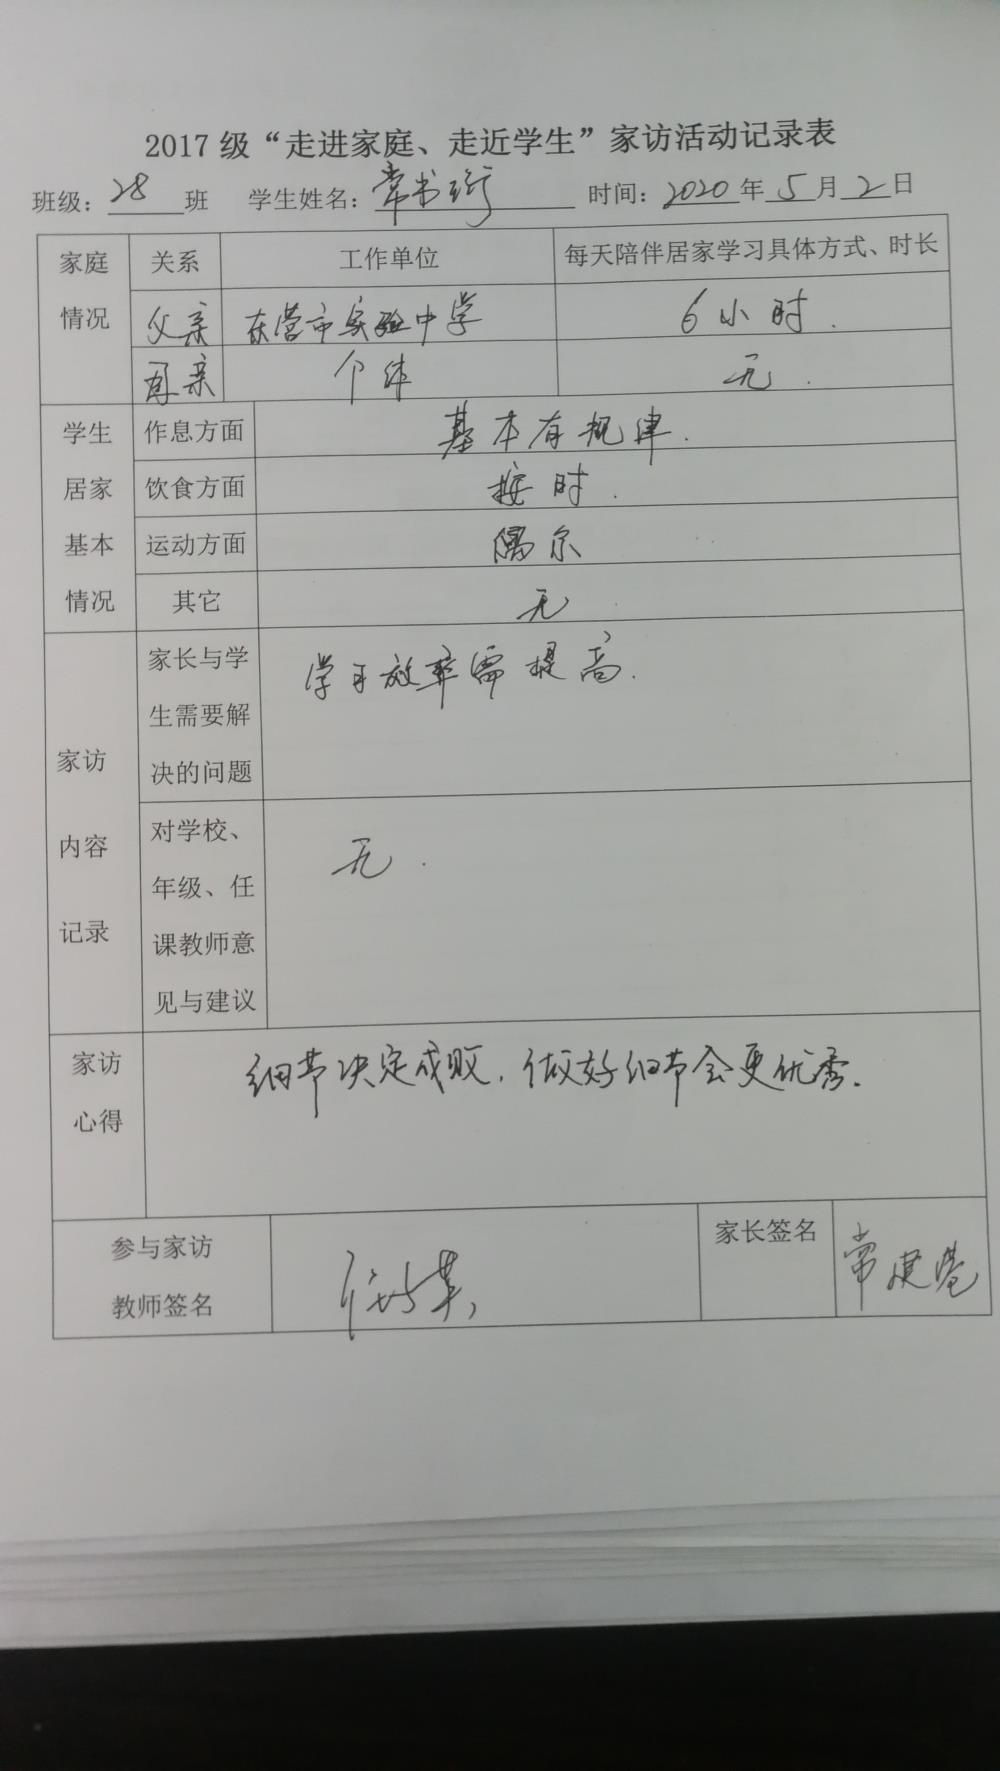 2017级“走进家庭、走近学生”家访活动记录表
班级：28班 学生姓名：常书珩 时间：2020年5月2日
家庭情况 关系 工作单位 每天陪伴居家学习具体方式、时长
父亲 东营市实验中学 6小时.
母亲 个体 无.
学生居家基本情况
作息方面 基本有规律.
饮食方面 按时.
运动方面 偶尔
其它 无
家访内容记录
家长与学生需要解决的问题 学习效率需提高.
对学校、年级、任课教师意见与建议 无.
家访心得 细节决定成败，做好细节会更优秀.
参与家访教师签名
家长签名 常建港